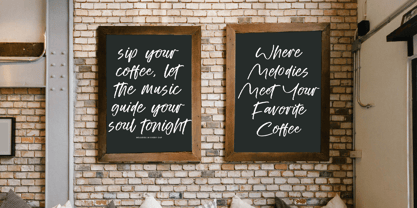 sip your
coffee, let
the music
guide your
soul tonight
Where
Melodies
Meet Your
Favorite
Coffee